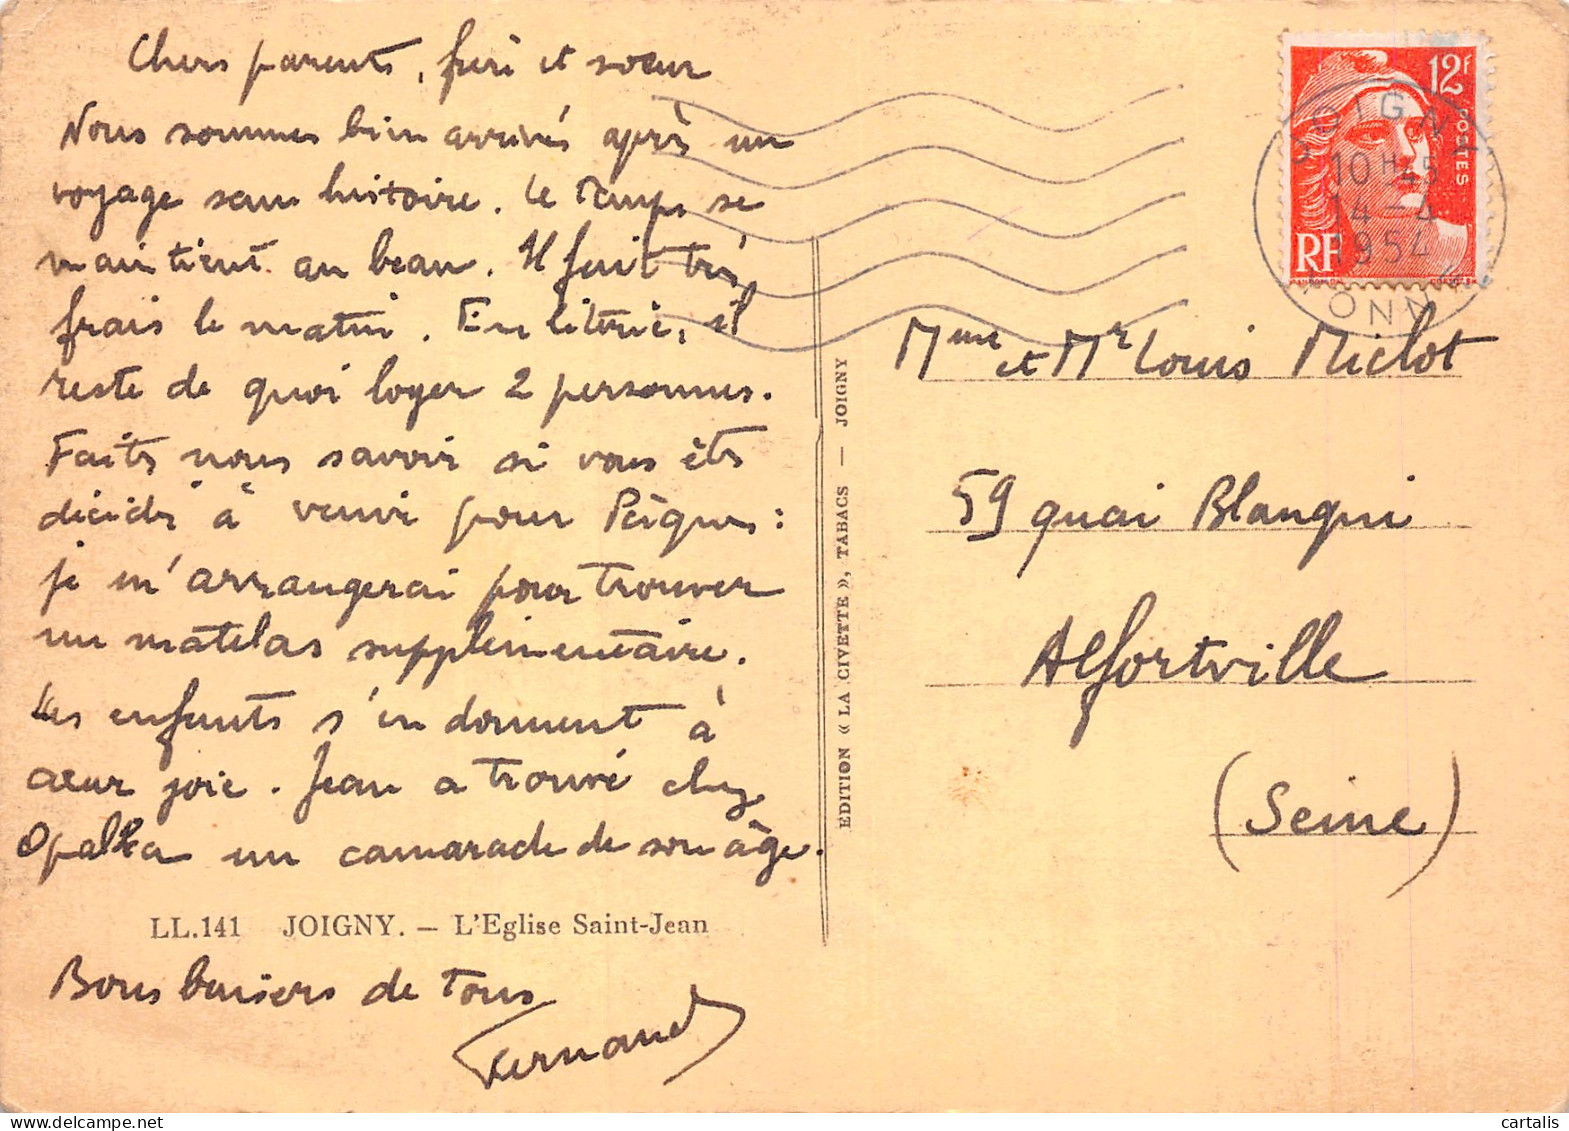 Chers parents, frère et soeur
Nous sommes bien arrivés après un
voyage sans histoire. Le temps se
maintient au beau. Il fait très
frais le matin. En literie, il
reste de quoi loger 2 personnes.
Faites nous savoir si vous êtes
décidés à venir pour Pâques :
je m'arrangerai pour trouver
un matelas supplémentaire.
Les enfants s'en donnent à
cœur joie. Jean a trouvé chez
Opalka un camarade de son âge.
LL.141 JOIGNY. — L'Eglise Saint-Jean
Bons baisers de tous
Fernand
EDITION « LA CIVETTE », TABACS — JOIGNY
12F
POSTES
RF
JOIGNY
10H45
14-4
1954
YONNE
Mme et Mr Louis Miclot
59 quai Blanqui
Alfortville
(Seine)
cartalis